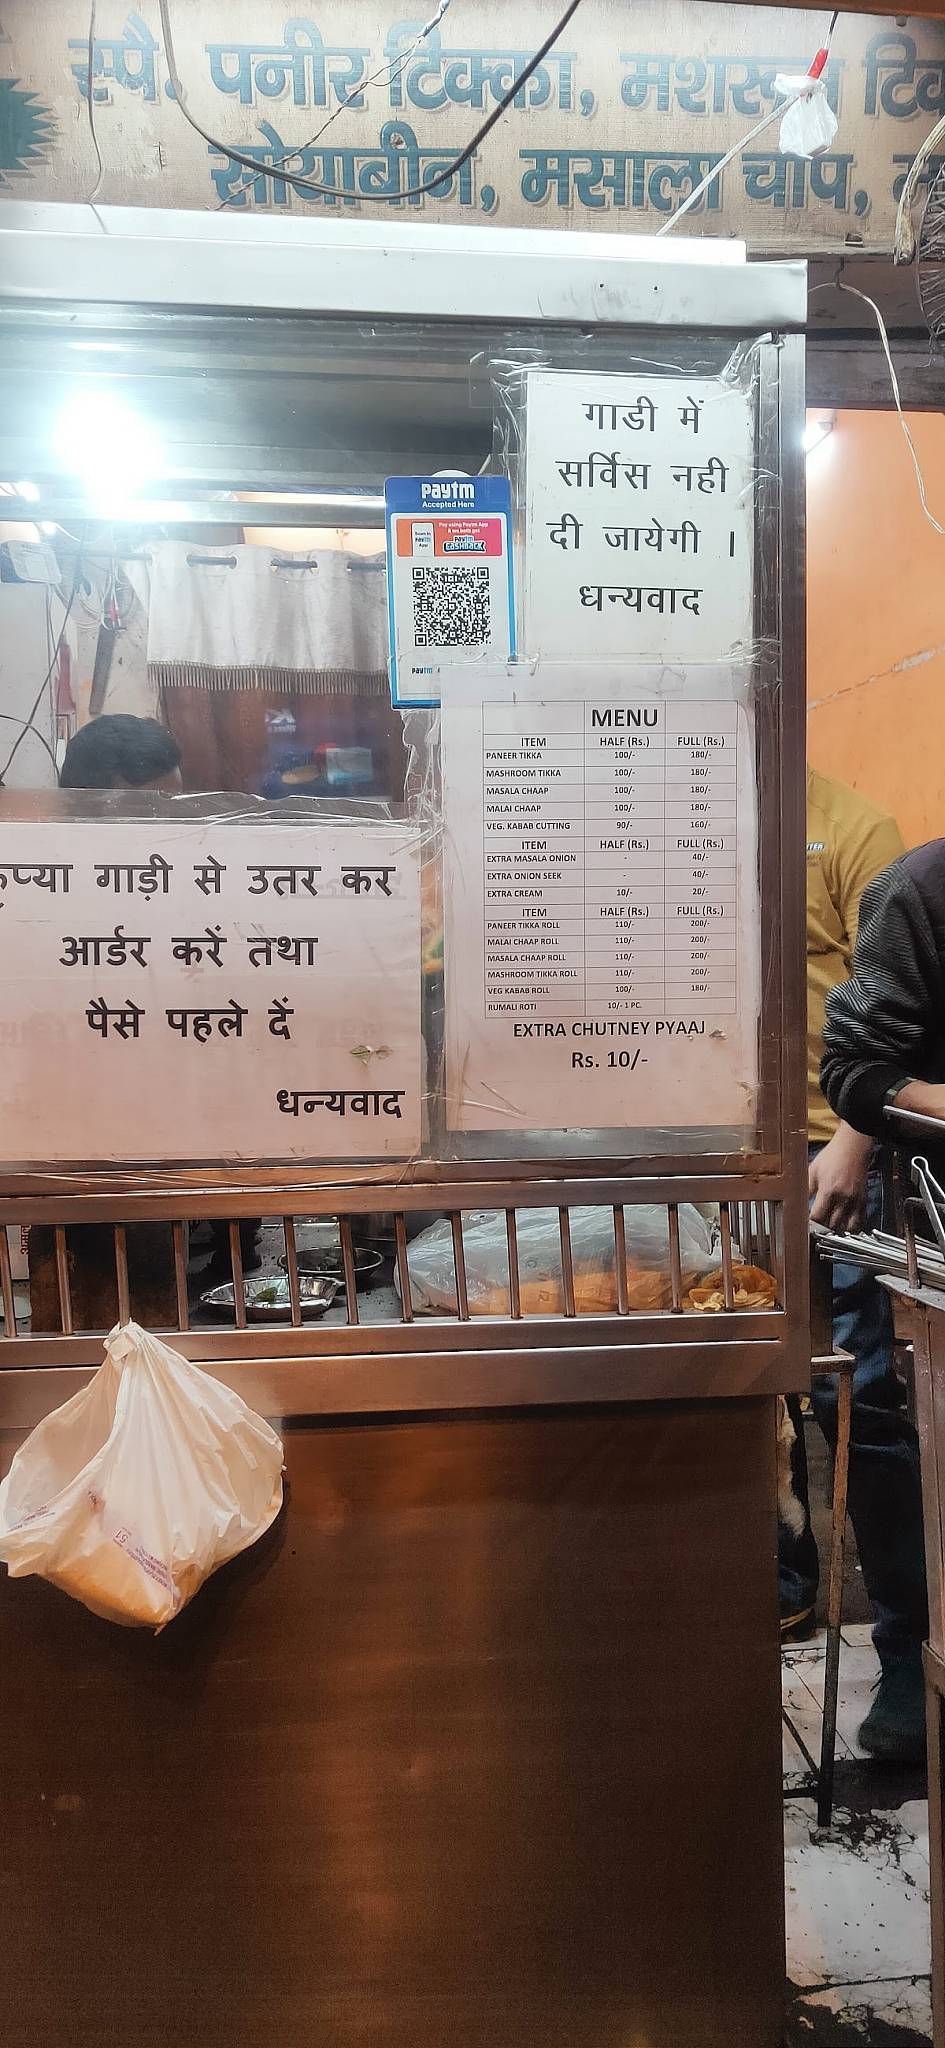 स्पै. पनीर टिक्का, मशरूम
सोयाबीन, मसाला चाप,
गाडी में
सर्विस नही
दी जायेगी ।
धन्यवाद
paytm
Accepted Here
Pay using Paytm App
& we both get
Scan in
Paytm
App
PAYTM
CASHBACK
paytm
MENU
ITEM HALF (Rs.) FULL (Rs.)
PANEER TIKKA 100/- 180/-
MASHROOM TIKKA 100/- 180/-
MASALA CHAAP 100/- 180/-
MALAI CHAAP 100/- 180/-
VEG. KABAB CUTTING 90/- 160/-
ITEM HALF (Rs.) FULL (Rs.)
EXTRA MASALA ONION - 40/-
EXTRA ONION SEEK - 40/-
EXTRA CREAM 10/- 20/-
ITEM HALF (Rs.) FULL (Rs.)
PANEER TIKKA ROLL 110/- 200/-
MALAI CHAAP ROLL 110/- 200/-
MASALA CHAAP ROLL 110/- 200/-
MASHROOM TIKKA ROLL 110/- 200/-
VEG KABAB ROLL 100/- 180/-
RUMALI ROTI 10/- 1 PC.
EXTRA CHUTNEY PYAAJ
Rs. 10/-
कृप्या गाड़ी से उतर कर
आर्डर करें तथा
पैसे पहले दें
धन्यवाद
51